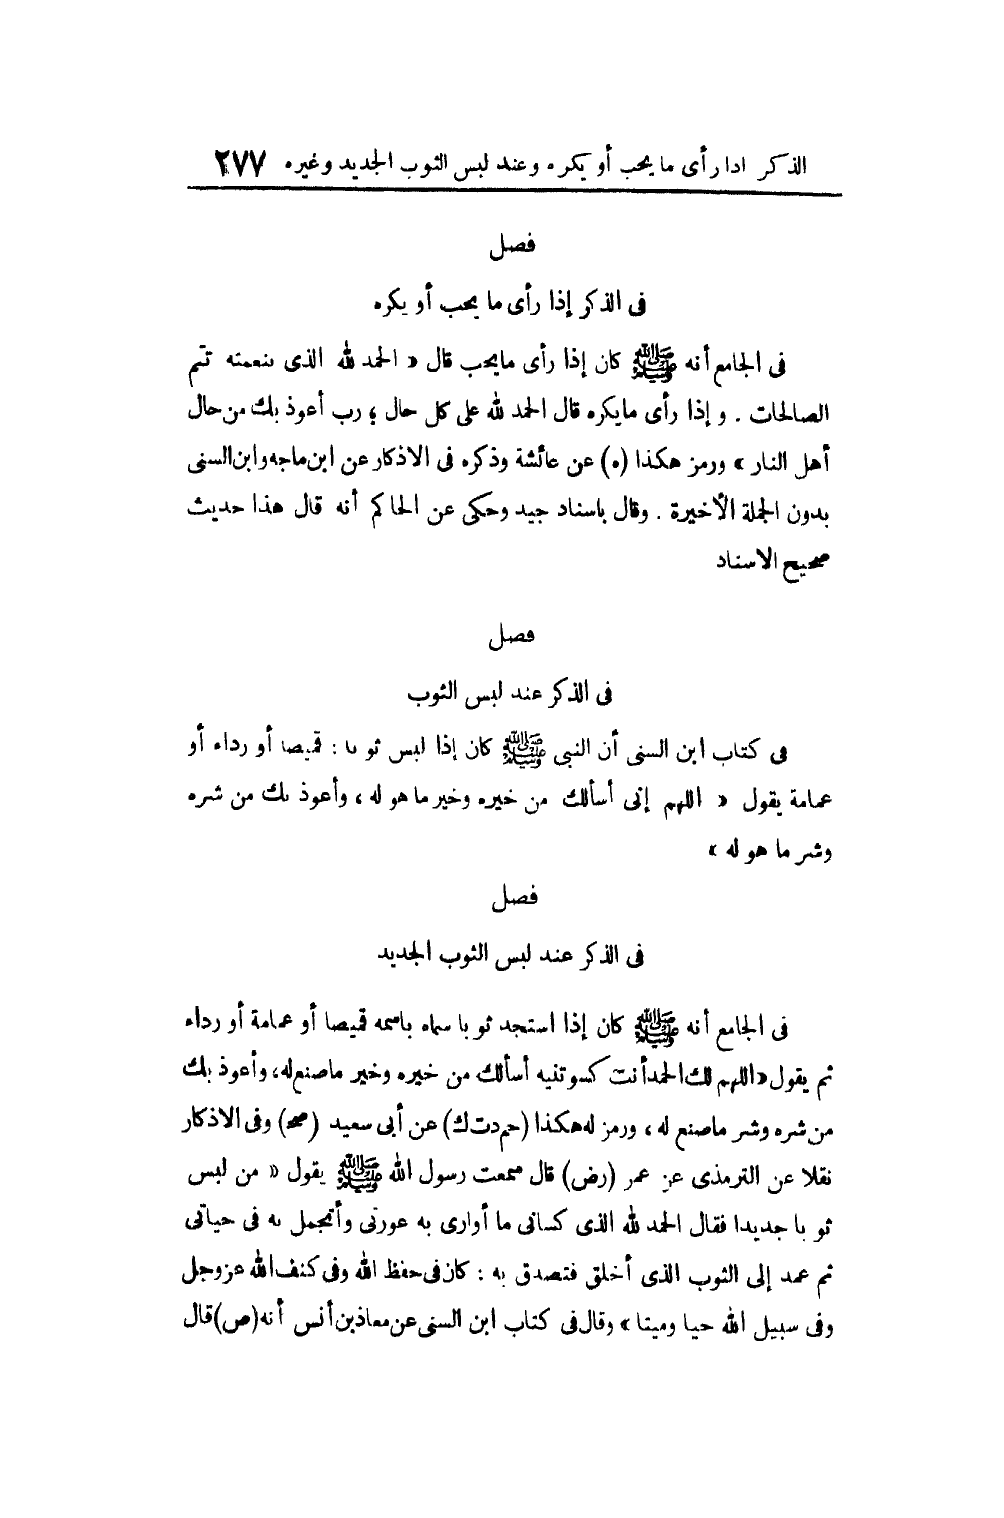 الذكر اذا رأى ما يحب أو يكره وعند لبس الثوب الجديد وغيره ٢٧٧
فصل
فى الذكر إذا رأى ما يحب أو يكره
فى الجامع أنه ﷺ كان إذا رأى مايحب قال « الحمد لله الذى بنعمته تتم
الصالحات . و إذا رأى مايكره قال الحمد لله على كل حال ؛ رب أعوذ بك من حال
أهل النار » ورمز هكذا (ه) عن عائشة وذكره فى الاذكار عن ابن ماجه وابن السنى
بدون الجملة الأخيرة . وقال باسناد جيد وحكى عن الحاكم أنه قال هذا حديث
صحيح الاسناد
فصل
فى الذكر عند لبس الثوب
فى كتاب ابن السنى أن النبى ﷺ كان إذا لبس ثوبا : قميصا أو رداء أو
عمامة يقول « اللهم إنى أسألك من خيره وخير ما هو له ، وأعوذ بك من شره
وشر ما هو له »
فصل
فى الذكر عند لبس الثوب الجديد
فى الجامع أنه ﷺ كان إذا استجد ثوبا سماه باسمه قميصا أو عمامة أو رداء
ثم يقول «اللهم لك الحمد أنت كسوتنيه أسألك من خيره وخير ماصنع له، وأعوذ بك
من شره وشر ماصنع له ، ورمز له هكذا (حم د ت ك) عن أبى سعيد (صح) وفى الاذكار
نقلا عن الترمذى عن عمر (رض) قال سمعت رسول الله ﷺ يقول « من لبس
ثوبا جديدا فقال الحمد لله الذى كسانى ما أوارى به عورتى وأتجمل به فى حياتى
ثم عمد إلى الثوب الذى أخلق فتصدق به : كان فى حفظ الله وفى كنف الله عز وجل
وفى سبيل الله حيا وميتا » وقال فى كتاب ابن السنى عن معاذ بن أنس أنه (ص) قال